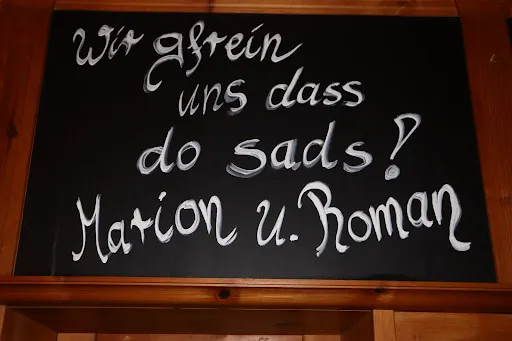 Wir gfrein
uns dass
do sads!
Marion u. Roman